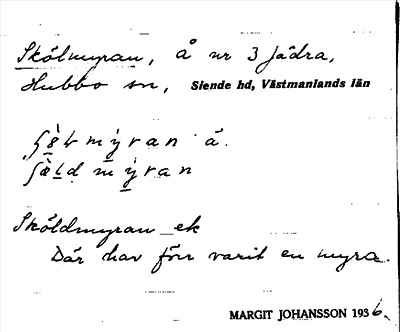 Skölmyran, Å nr 3 Jädra,
Hubbo sn, Siende hd, Västmanlands län
myran å.
myran
Sköldmyran ek
Där har förr varit en myra.
MARGIT JOHANSSON 1936.